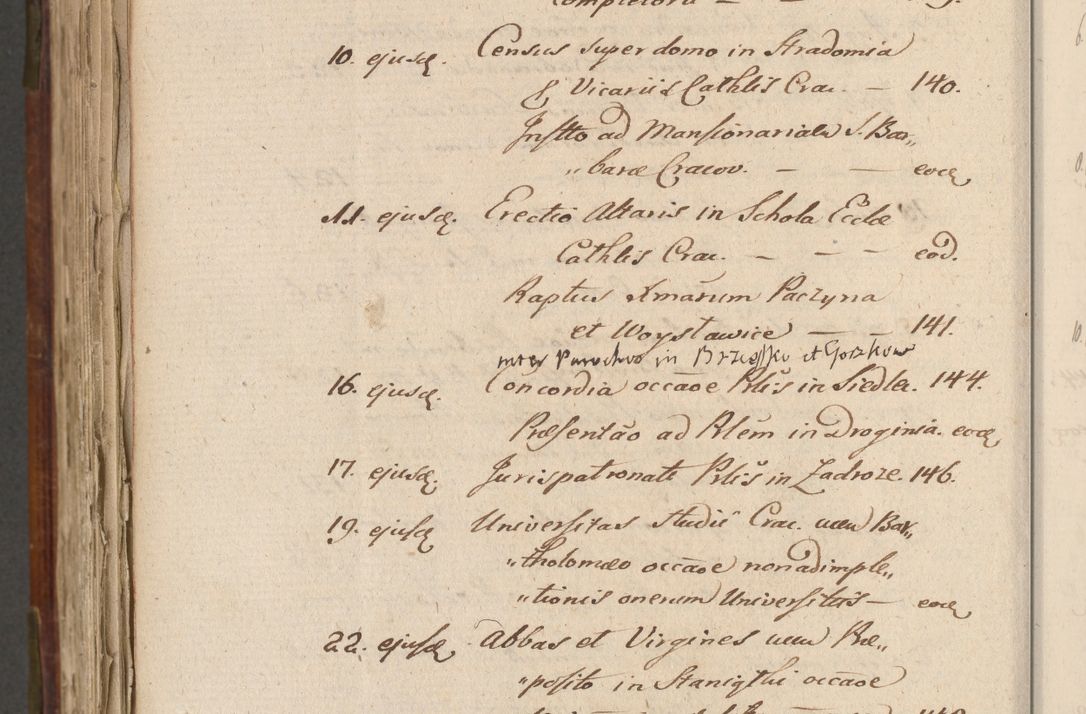 10. ejusd. Census super domo in Stradomia
p Vicariis Cathlis Crac. — 140.
Instto ad Mansionariam S. Bar„
„barae Cracov. — — eod
11. ejusd. Erectio Altaris in Schola Eccle
Cathlis Crac. — — — eod.
Raptus Xmarum Paczyna
et Woysławice — — 141.
inter Parochos in et
16. ejusd. Concordia occāoe Pltis in Siedlec. 144.
Præsentāo ad Pltēm in Droginia. eod
17. ejusd. Jurispatronats Pltis in Zadroze. 146.
19. ejusd Universitas Studii Crac. cum Bar„
„tholomæo occāoe non adimple„
„tionis onerum Universitatis — eod
22. ejusd Abbas et Virgines cum Præ„
„posito in Stanigthi occāoe